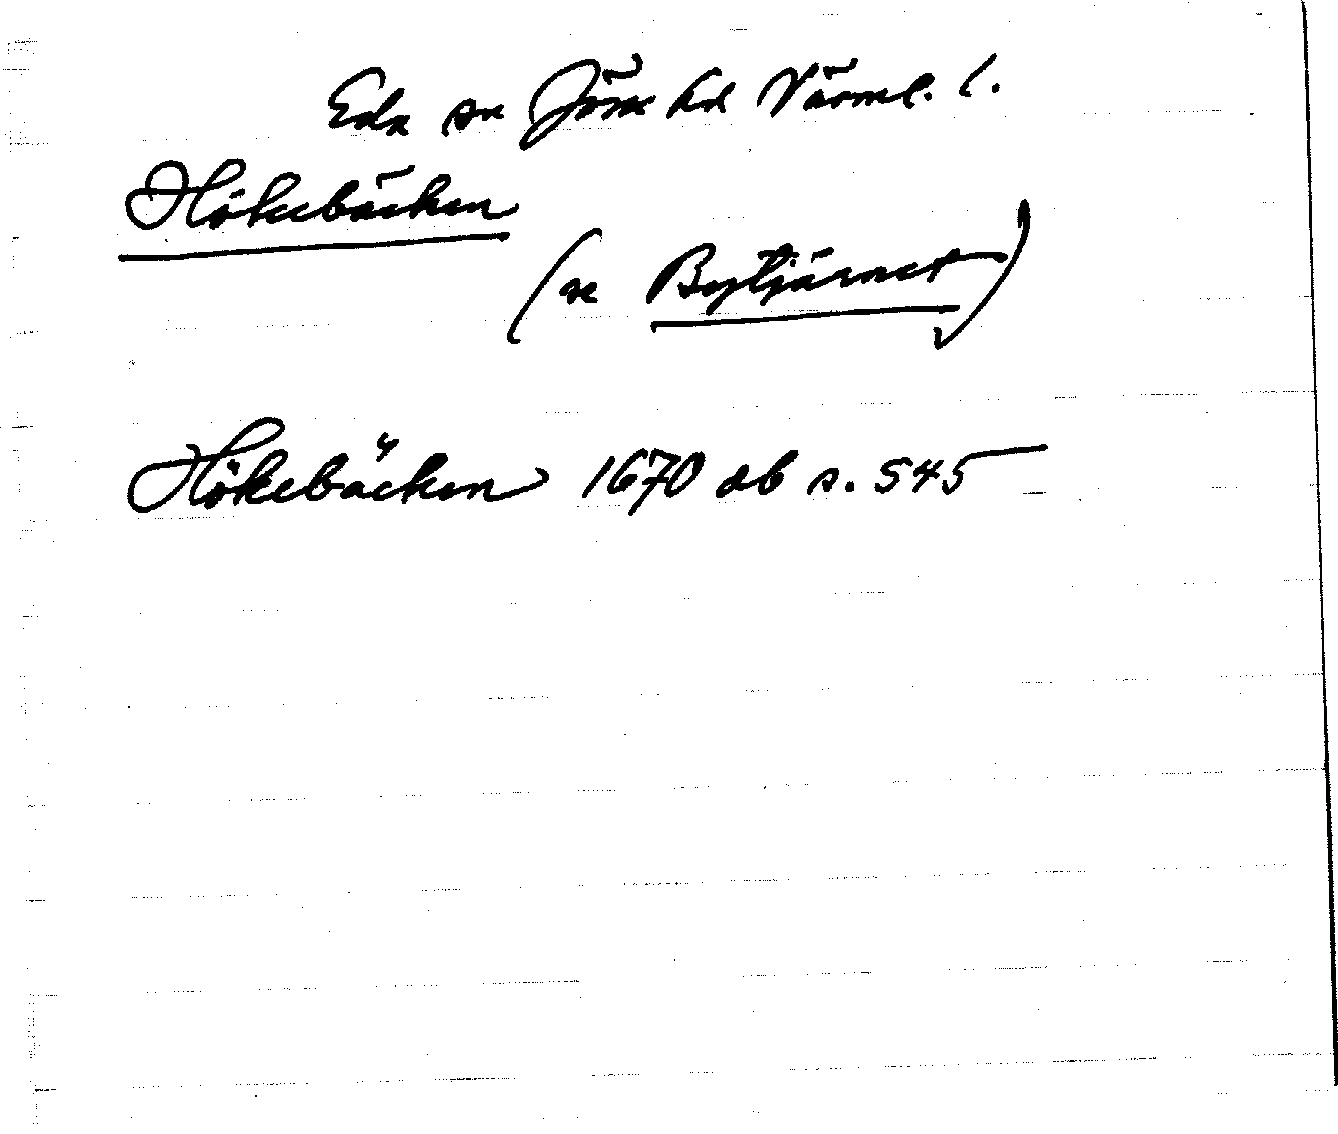 Eda sn Jösse hd Värml. l.
Hökebäcken
(se Bytjärnet)
Hökebäcken 1670 db s. 545